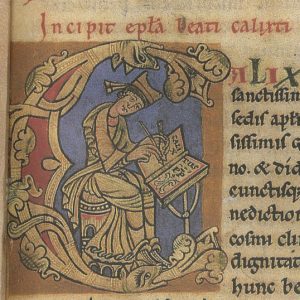 Incipit epła beati calixti
ALIX
sanctissim
sedis apłi
sissimis g
no. & dio
cunctisq
nediction
cosmi clu
dignitat
hunc be